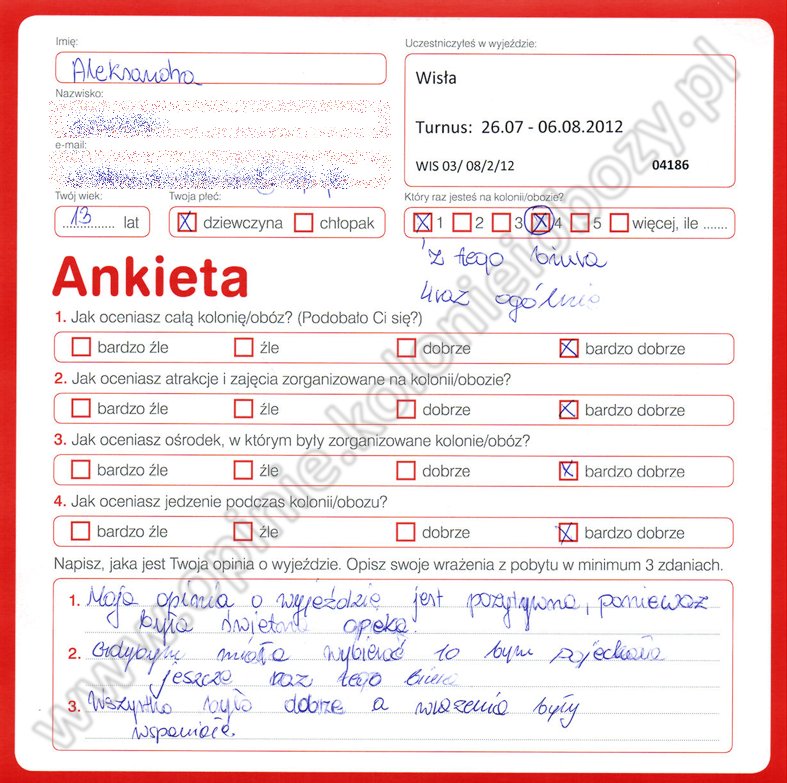 Imię:
Aleksandra
Uczestniczyłeś w wyjeździe:
Wisła
Turnus: 26.07 - 06.08.2012
WIS 03/ 08/2/12 04186
Nazwisko:
e-mail:
Twój wiek:
13 lat
Twoja płeć:
X dziewczyna chłopak
Który raz jesteś na kolonii/obozie?
X 1 2 3 X 4 5 więcej, ile .......
z tego biura
4 raz ogólnie
Ankieta
1. Jak oceniasz całą kolonię/obóz? (Podobało Ci się?)
bardzo źle źle dobrze X bardzo dobrze
2. Jak oceniasz atrakcje i zajęcia zorganizowane na kolonii/obozie?
bardzo źle źle dobrze X bardzo dobrze
3. Jak oceniasz ośrodek, w którym były zorganizowane kolonie/obóz?
bardzo źle źle dobrze X bardzo dobrze
4. Jak oceniasz jedzenie podczas kolonii/obozu?
bardzo źle źle dobrze X bardzo dobrze
Napisz, jaka jest Twoja opinia o wyjeździe. Opisz swoje wrażenia z pobytu w minimum 3 zdaniach.
1. Moja opinia o wyjeździe jest pozytywna, ponieważ
była świetna opieka.
2. Gdybym miała wybierać to bym pojechała
jeszcze raz tego biura
3. Wszystko było dobrze a wrażenia były
wspaniałe.
www.opinie.kolonieiobozy.pl